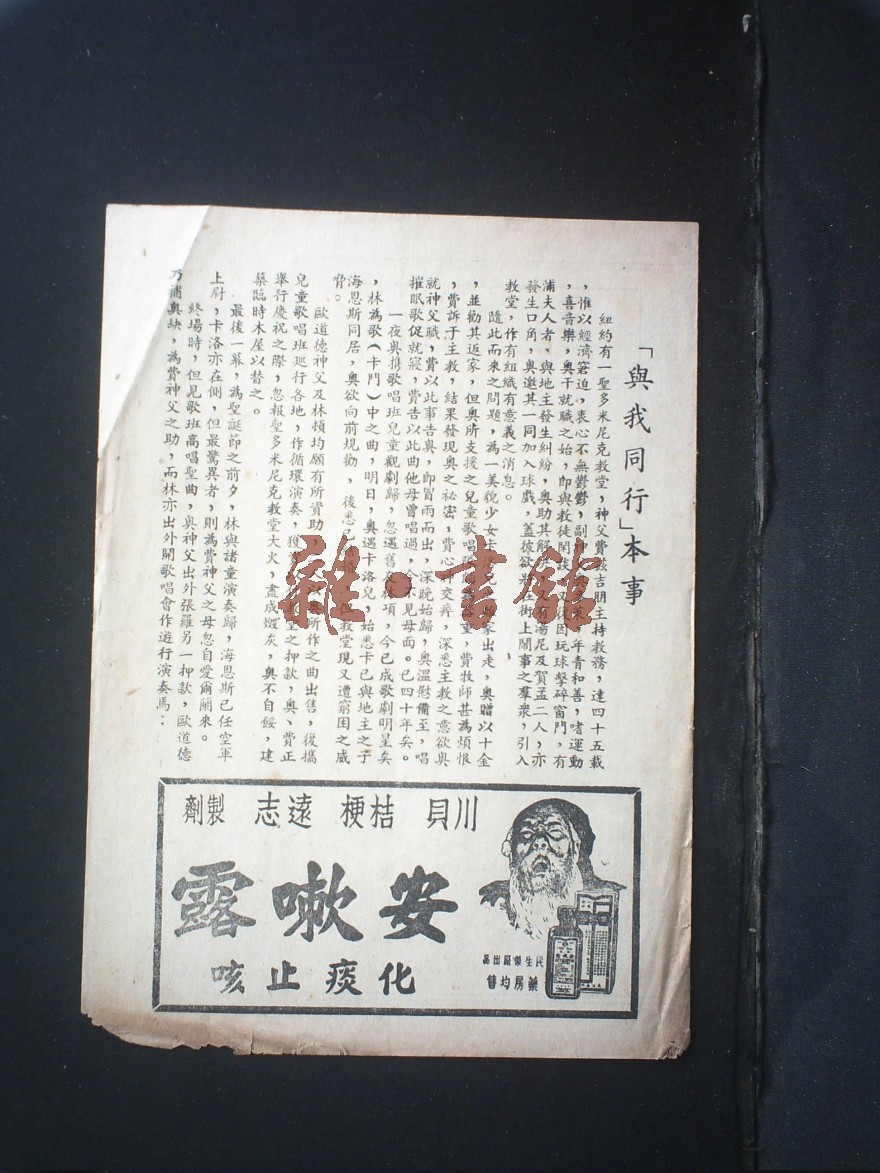 「與我同行」本事
紐約有一聖多米尼克教堂，神父費茲吉朋主持教務，達四十五載
，惟以經濟窘迫，衷心不無鬱鬱，副神父 年青和善，嗜運動
，喜音樂，奧干就職之始，即與教徒閑談，又復因玩球擊碎窗門，有
浦夫人者，與地主發生糾紛，奧助其解 又有湯尼及賀孟二人，亦
發生口角，奧邀其一同加入球戲，蓋彼欲 街上鬧事之羣衆，引入
教堂，作有組織有意義之消息。
隨此而來之問題，為一美貌少女卡洛兒 家出走，奧贈以十金
，並勸其返家，但奧所支援之兒童歌唱 ，費牧師甚為煩恨
，費訴于主教，結果發現奧之祕密，費心中交瘁，深悉主教之意欲奧
就神父職，費以此事告奧，即冒雨而出，深晚始歸，奧溫慰備至，唱
催眠歌促就寢，費告以此曲他母曾唱過， 不見母面。已四十年矣。
一夜奧携歌唱班兒童觀劇歸，忽遇舊 林項，今已成歌劇明星矣
，林為歌（卡門）中之曲，明日，奧遇卡洛兒，始悉卡已與地主之子
海恩斯同居，奧欲向前規勸， 後悉已結 但教堂現又遭窮困之威
脅。
歐道德神父及林頓均願有所資助， 以 所作之曲出售，復攜
兒童歌唱班巡行各地，作循環演奏，獲 教堂之押款，奧、費正
舉行慶祝之際，忽報聖多米尼克教堂大火，盡成燬灰，奧不自餒，建
築臨時木屋以替之。
最後一幕，為聖誕節之前夕，林與諸童演奏歸，海恩斯已任空軍
上尉，卡洛亦在側，但最驚異者，則為費神父之母忽自愛爾蘭來。
終場時，但見歌班高唱聖曲，奧神父出外張羅另一押款，歐道德
乃補奧缺，為費神父之助，而林亦出外開歌唱會作遊行演奏焉：
雜·書館
川貝 桔梗 遠志 製劑
安嗽露
化痰止咳
民生藥廠出品
藥房均售